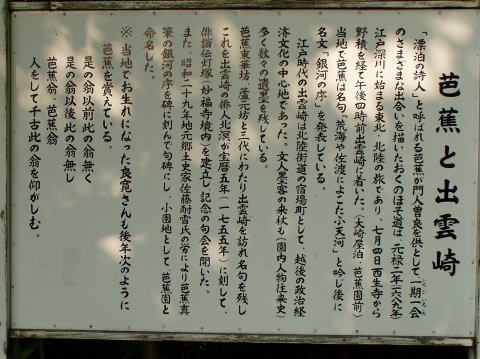 芭蕉と出雲崎
「漂泊の詩人」と呼ばれる芭蕉が門人曽良を供として一期一会
のさまざまな出合いを描いたおくのほそ道は、元禄二年(一六八九年)
江戸深川に始まる東北・北陸の旅であり、七月四日西生寺から
野積を経て午後四時前出雲崎に着いた。(大崎屋泊・芭蕉園前)
当地で芭蕉は名句「荒海や佐渡によこたふ天河」と吟じ後に
名文「銀河の序」を発表している。
江戸時代の出雲崎は北陸街道の宿場町として、越後の政治経
済文化の中心地であった。文人墨客の来杖も(園内人物往来史)
多く数々の遺墨を残している。
芭蕉東華坊・盧元坊と三代にわたり出雲崎を訪れ名句を残し
これを出雲崎の俳人北溟が宝暦五年(一七五五年)に刻して、
俳諧伝灯塚(妙福寺境内)を建立し、記念の句会を開いた。
また、昭和二十九年地元郷土史家佐藤耐雪氏の労により芭蕉真
筆の銀河の序を碑に刻んで句碑にし、小園地として、芭蕉園と
命名した。
※当地でお生れになった良寛さんも後年次のように
芭蕉を賞えている。
是の翁以前此の翁無く
是の翁以後此の翁無し
芭蕉翁 芭蕉翁
人をして千古此の翁を仰がしむ。